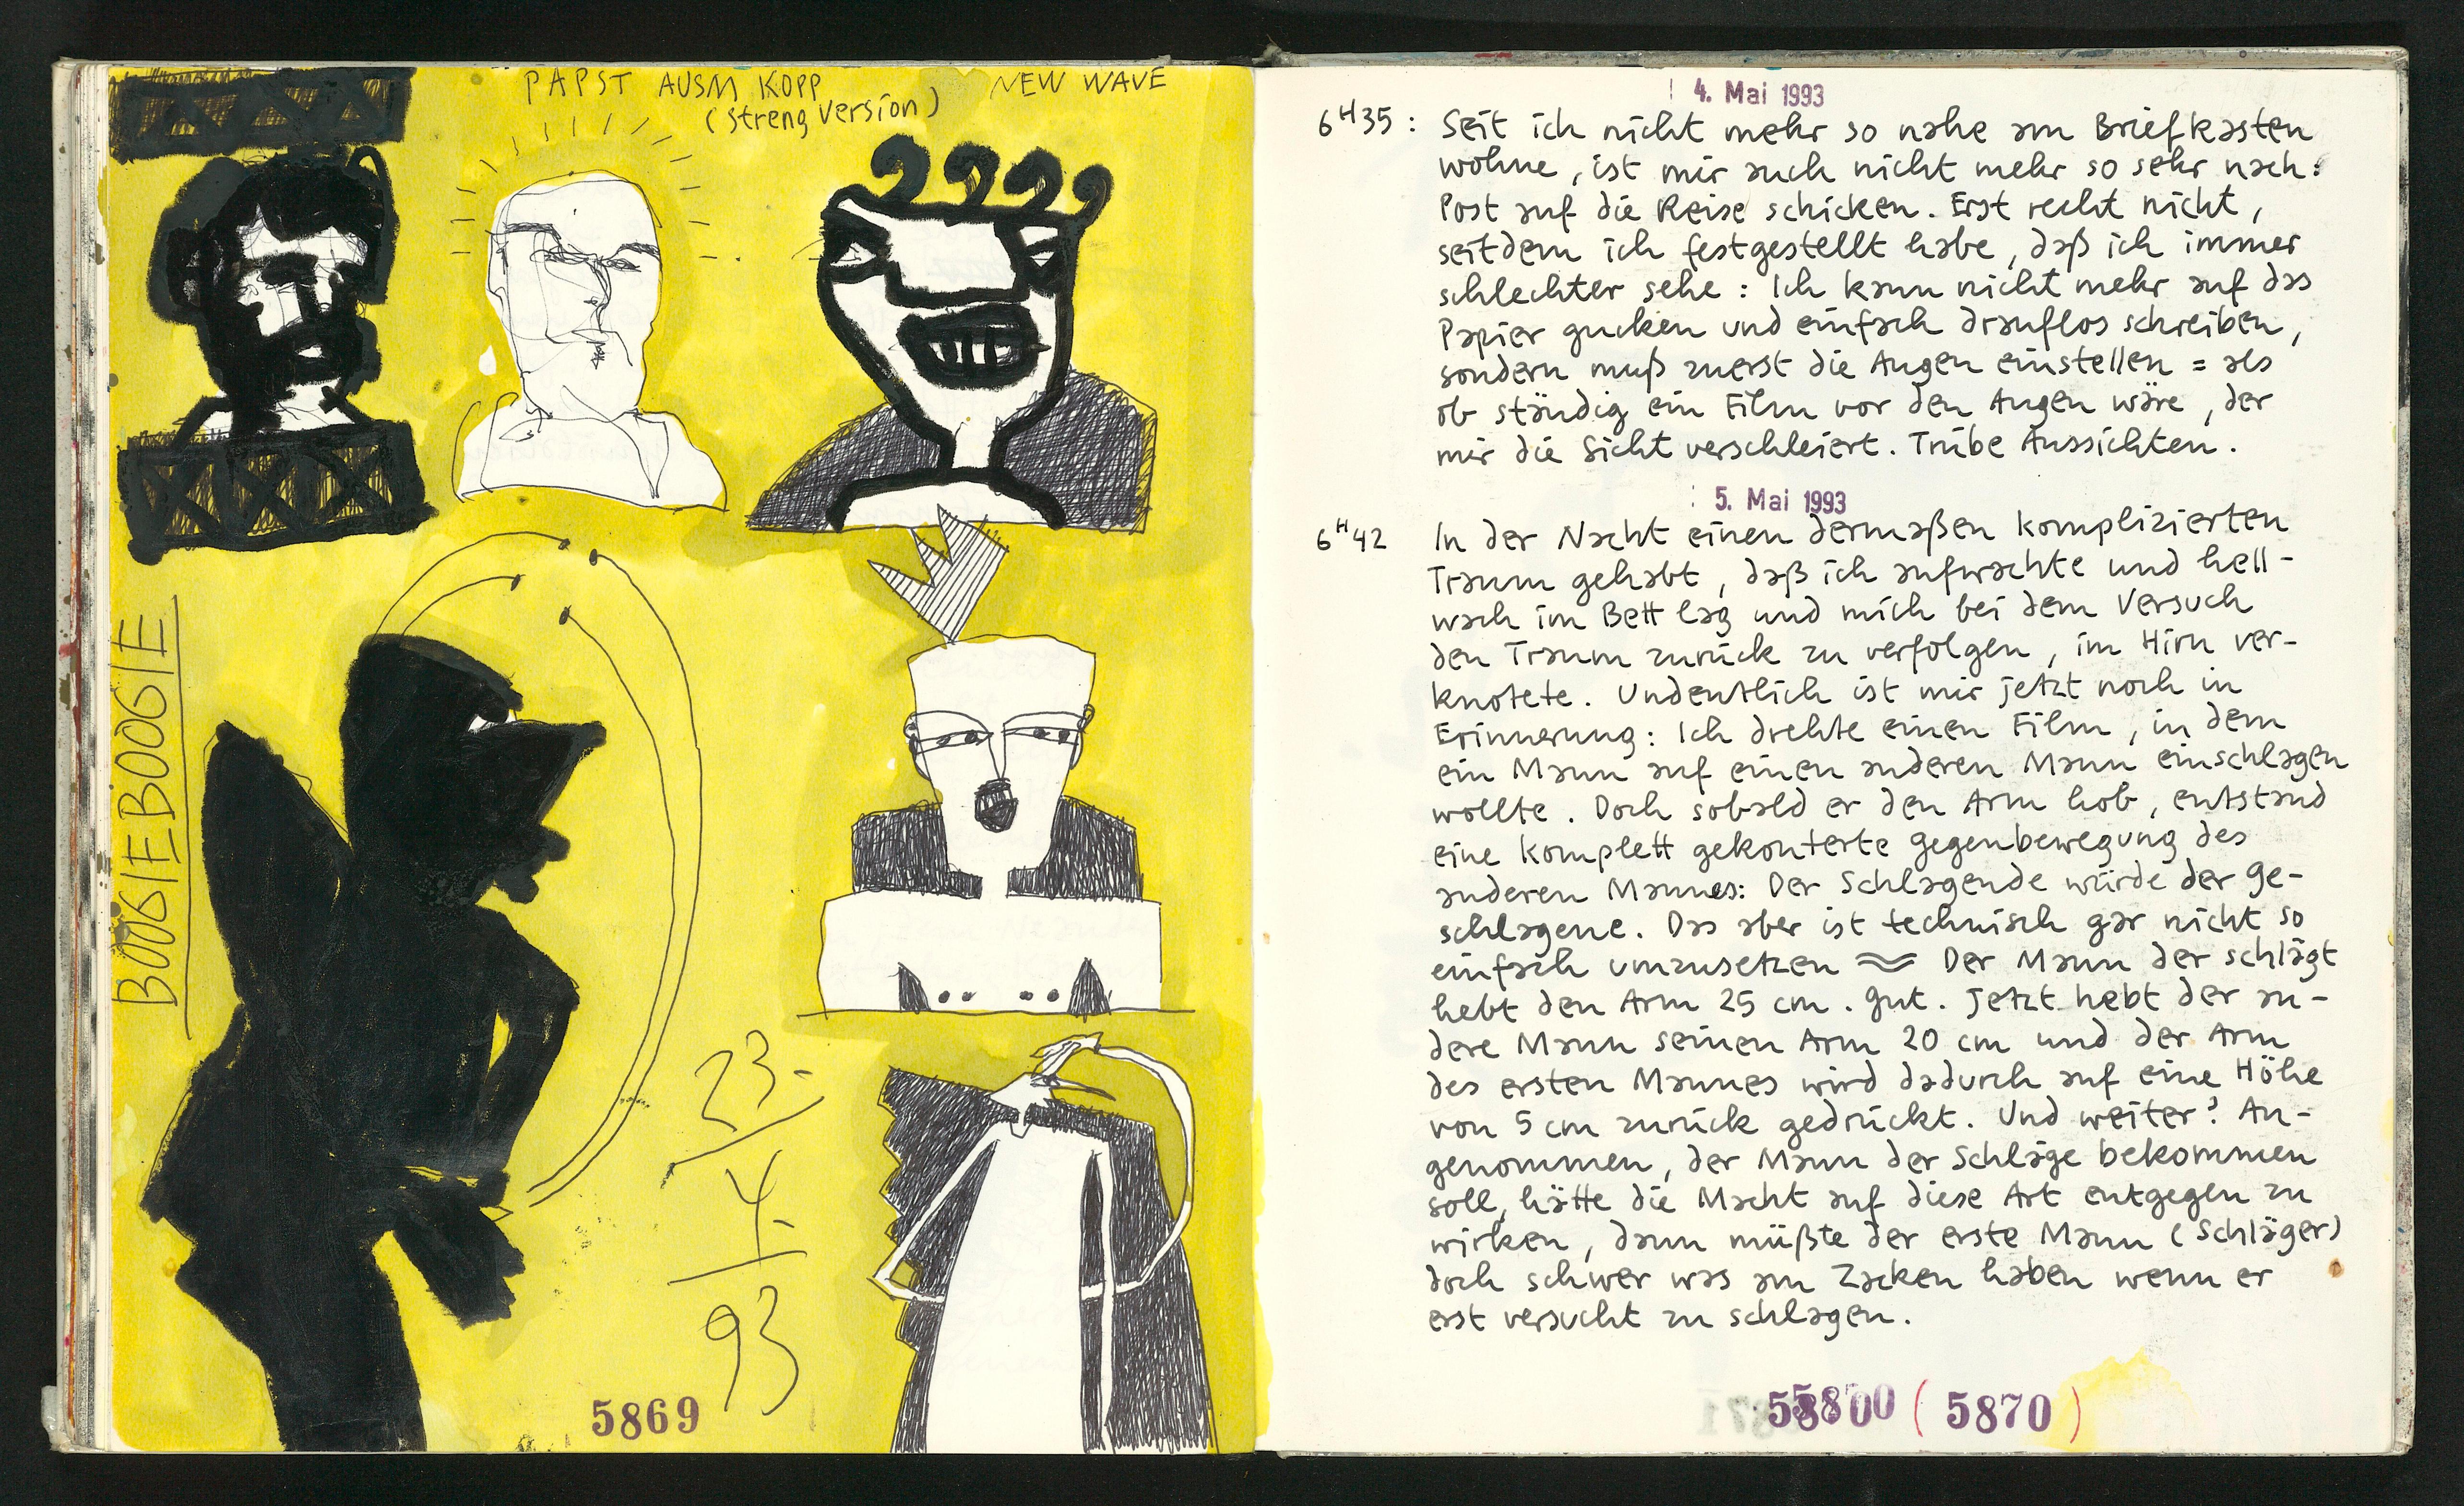 PAPST AUSM KOPP
(streng version)
NEW WAVE
BOOGIEBOOGIE
23.
4.
93
5869
4. Mai 1993
6H35: Seit ich nicht mehr so nahe am Briefkasten
wohne, ist mir auch nicht mehr so sehr nach:
Post auf die Reise schicken. Erst recht nicht,
seitdem ich festgestellt habe, daß ich immer
schlechter sehe: Ich kann nicht mehr auf das
Papier gucken und einfach drauflos schreiben,
sondern muß zuerst die Augen einstellen = als
ob ständig ein Film vor den Augen wäre, der
mir die Sicht verschleiert. Trübe Aussichten.
5. Mai 1993
6H42 In der Nacht einen dermaßen komplizierten
Traum gehabt, daß ich aufwachte und hell-
wach im Bett lag und mich bei dem Versuch
den Traum zurück zu verfolgen, im Hirn ver-
knotete. Undeutlich ist mir jetzt noch in
Erinnerung: Ich drehte einen Film, in dem
ein Mann auf einen anderen Mann einschlagen
wollte. Doch sobald er den Arm hob, entstand
eine komplett gekonterte Gegenbewegung des
anderen Mannes: Der Schlagende würde der ge-
schlagene. Das aber ist technisch gar nicht so
einfach umzusetzen ≈ Der Mann der schlägt
hebt den Arm 25 cm. Gut. Jetzt hebt der an-
dere Mann seinen Arm 20 cm und der Arm
des ersten Mannes wird dadurch auf eine Höhe
von 5 cm zurück gedrückt. Und weiter? An-
genommen, der Mann der Schläge bekommen
soll, hätte die Macht auf diese Art entgegen zu
wirken, dann müßte der erste Mann (Schläger)
doch schwer was am Zacken haben wenn er
erst versucht zu schlagen.
(5870)